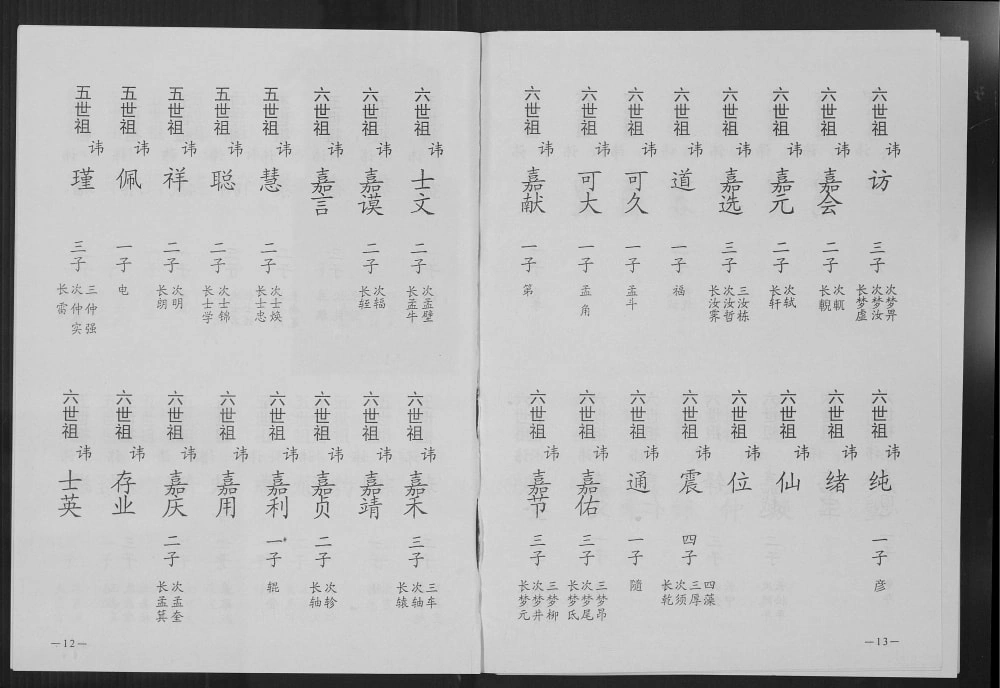 五世祖 讳 瑾 三子 长雷 次仲实 三仲强
五世祖 讳 佩 一子 电
五世祖 讳 祥 二子 长朗 次明
五世祖 讳 聪 二子 长士学 次士锦
五世祖 讳 慧 二子 长士忠 次士焕
六世祖 讳 嘉言
六世祖 讳 嘉谟 二子 长轾 次辐
六世祖 讳 士文 二子 长孟牛 次孟壁
六世祖 讳 士英
六世祖 讳 存业
六世祖 讳 嘉庆 二子 长孟萁 次孟奎
六世祖 讳 嘉用
六世祖 讳 嘉利 一子 辊
六世祖 讳 嘉贞 二子 长轴 次轸
六世祖 讳 嘉靖
六世祖 讳 嘉禾 三子 长辕 次轴 三车
—12—
六世祖 讳 嘉献 一子 第
六世祖 讳 可大 一子 孟角
六世祖 讳 可久 一子 孟斗
六世祖 讳 道 一子 福
六世祖 讳 嘉选 三子 长汝霁 次汝哲 三汝栋
六世祖 讳 嘉元 二子 长轩 次轼
六世祖 讳 嘉会 二子 长輗 次軏
六世祖 讳 访 三子 长梦虚 次梦汝 次梦畀
六世祖 讳 嘉节 三子 长梦元 次梦井 三梦柳
六世祖 讳 嘉佑 三子 长梦氐 次梦尾 三梦昴
六世祖 讳 通 一子 随
六世祖 讳 震 四子 长乾 次须 三厚 四藻
六世祖 讳 位
六世祖 讳 仙
六世祖 讳 绪
六世祖 讳 纯 一子 彦
—13—